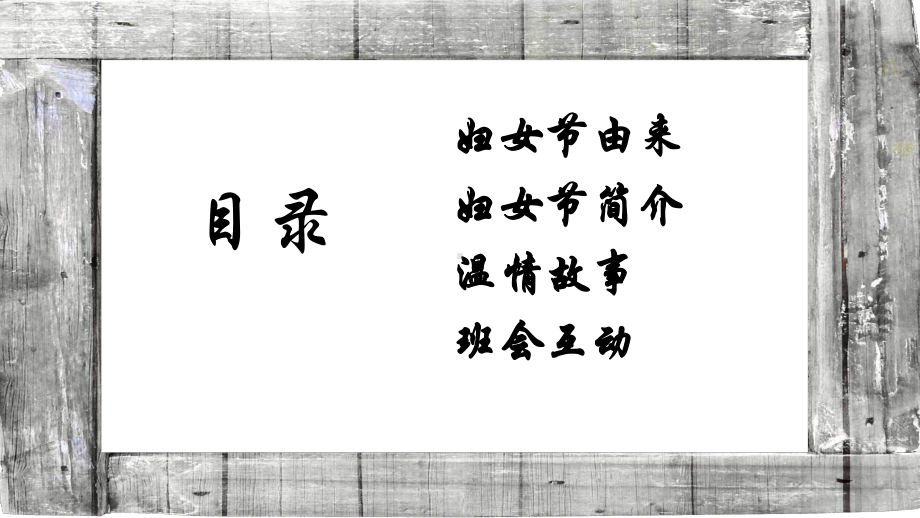 目录
妇女节由来
妇女节简介
温情故事
班会互动